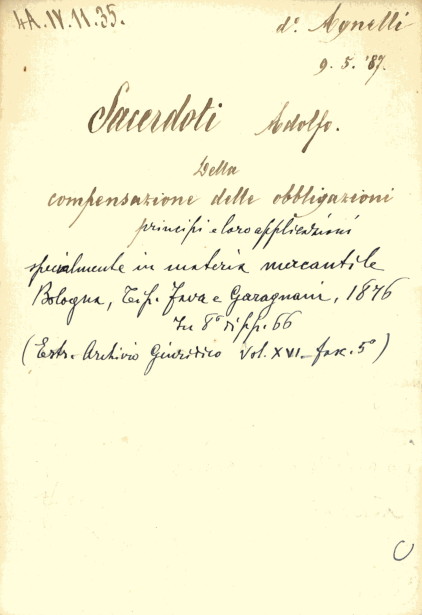 4A.IV.11.35.
d.r Agnelli
9. 5. '87.
Sacerdoti Adolfo.
Della
compensazione delle obbligazioni
principi e loro applicazioni
specialmente in materia mercantile
Bologna, Tip. Fava e Garagnani, 1876
In 8° di pp. 66
(Estr. Archivio Giuridico Vol. XVI_ fasc. 5°)